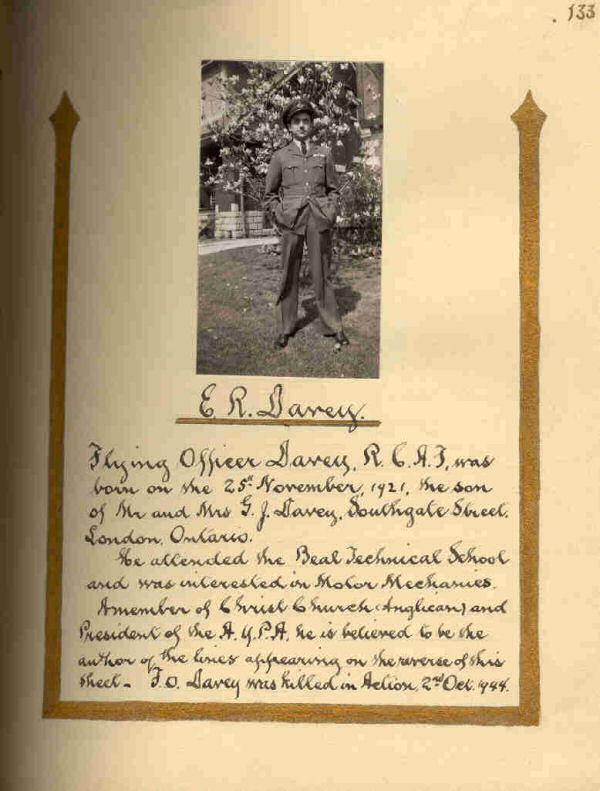 133
E. R. Davey.
Flying Officer Davey, R. C. A. F., was
born on the 25th November, 1921, the son
of Mr and Mrs G. J. Davey, Southgate Street,
London, Ontario.
He attended the Beal Technical School
and was interested in Motor Mechanics.
A member of Christ Church (Anglican) and
President of the A. Y. P. A. he is believed to be the
author of the lines appearing on the reverse of this
sheet - F. O. Davey was killed in Action, 2nd Oct. 1944.